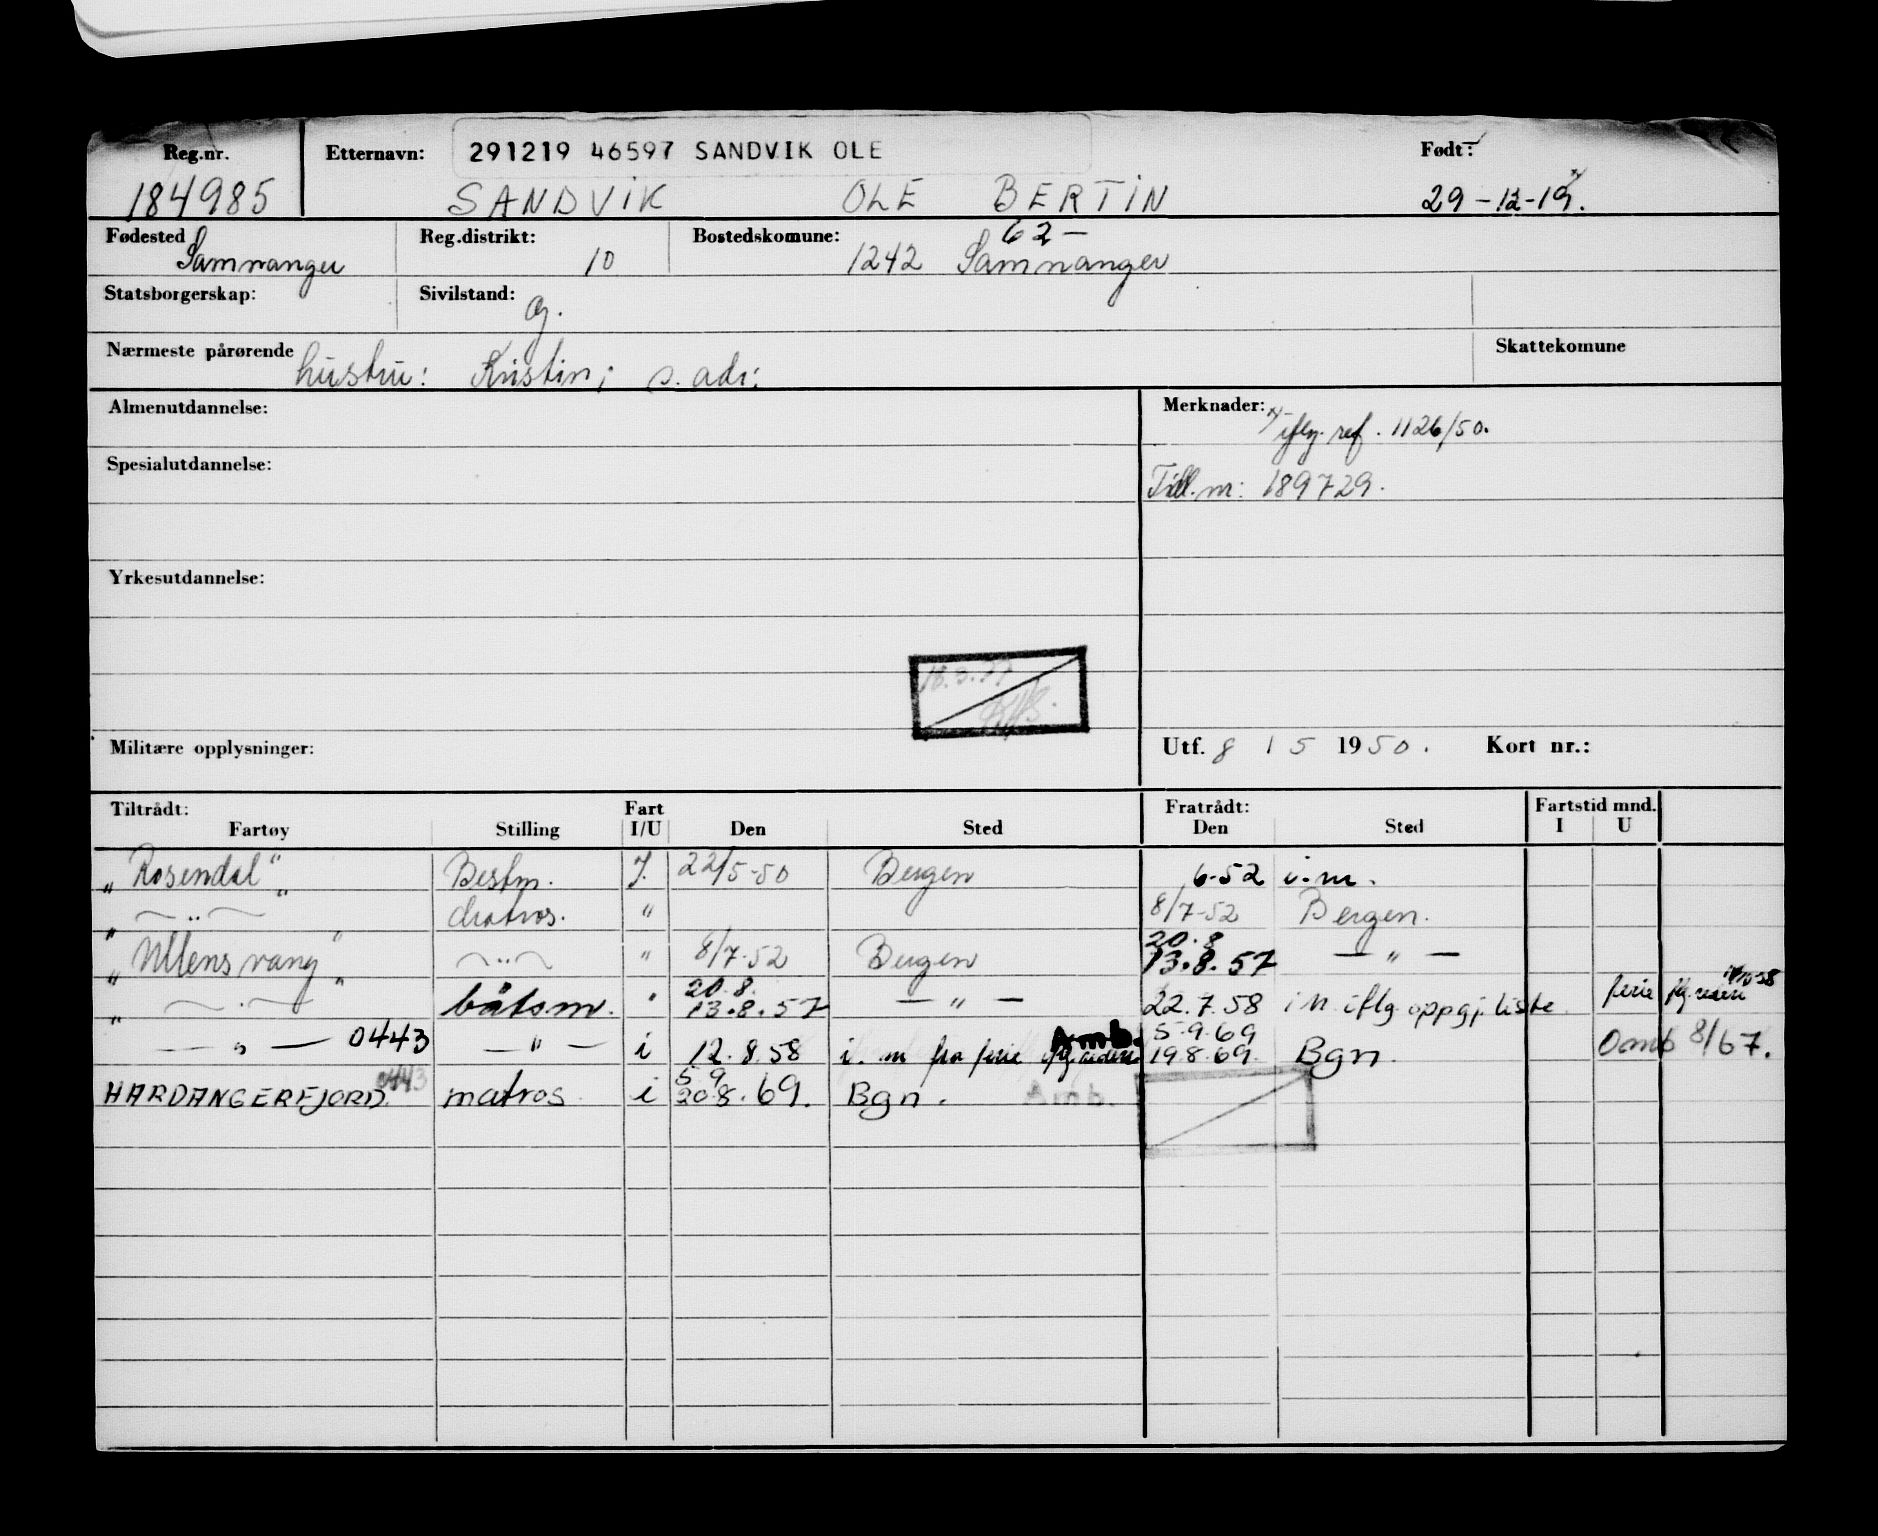 Reg.nr. Etternavn: 291219 46597 SANDVIK OLE Født:
184985 SANDVIK OLE BERTIN 29-12-19. x/
Fødested Samnanger Reg.distrikt: 10 Bostedskomune: 62- 1242 Samnanger
Statsborgerskap: Sivilstand: g.
Nærmeste pårørende hustru: Kristin; s. adr: Skattekomune
Almenutdannelse: Merknader: x/ iflg. ref. 1126/50.
Spesialutdannelse: Till.nr: 189729.
Yrkesutdannelse:
18.3.77
Militære opplysninger: Utf. 8 / 5 1950. Kort nr.:
Tiltrådt: Fart Fratrådt: Fartstid mnd.
Fartøy Stilling I/U Den Sted Den Sted I U
"Rosendal" Bestm. I. 22/5-50 Bergen 6-52 i.m.
" — " — " matros. " 8/7-52 Bergen.
"Ullensvang" — " — " 8/7-52 Bergen 20.8 13.8.57 — " —
" — " — " båtsm. " 20.8. 13.8.57 — " — 22.7.58 i.m. iflg. oppgj. liste ferie flg. rederi
" — " — 0443 — " — i 12.8.58 i.m fra ferie iflg rederi Amb. 5.9.69 19.8.69. Bgn. Omb 8/67.
HARDANGERFJORD. 0443 matros i 5 9 20.8.69. Bgn. Amb.